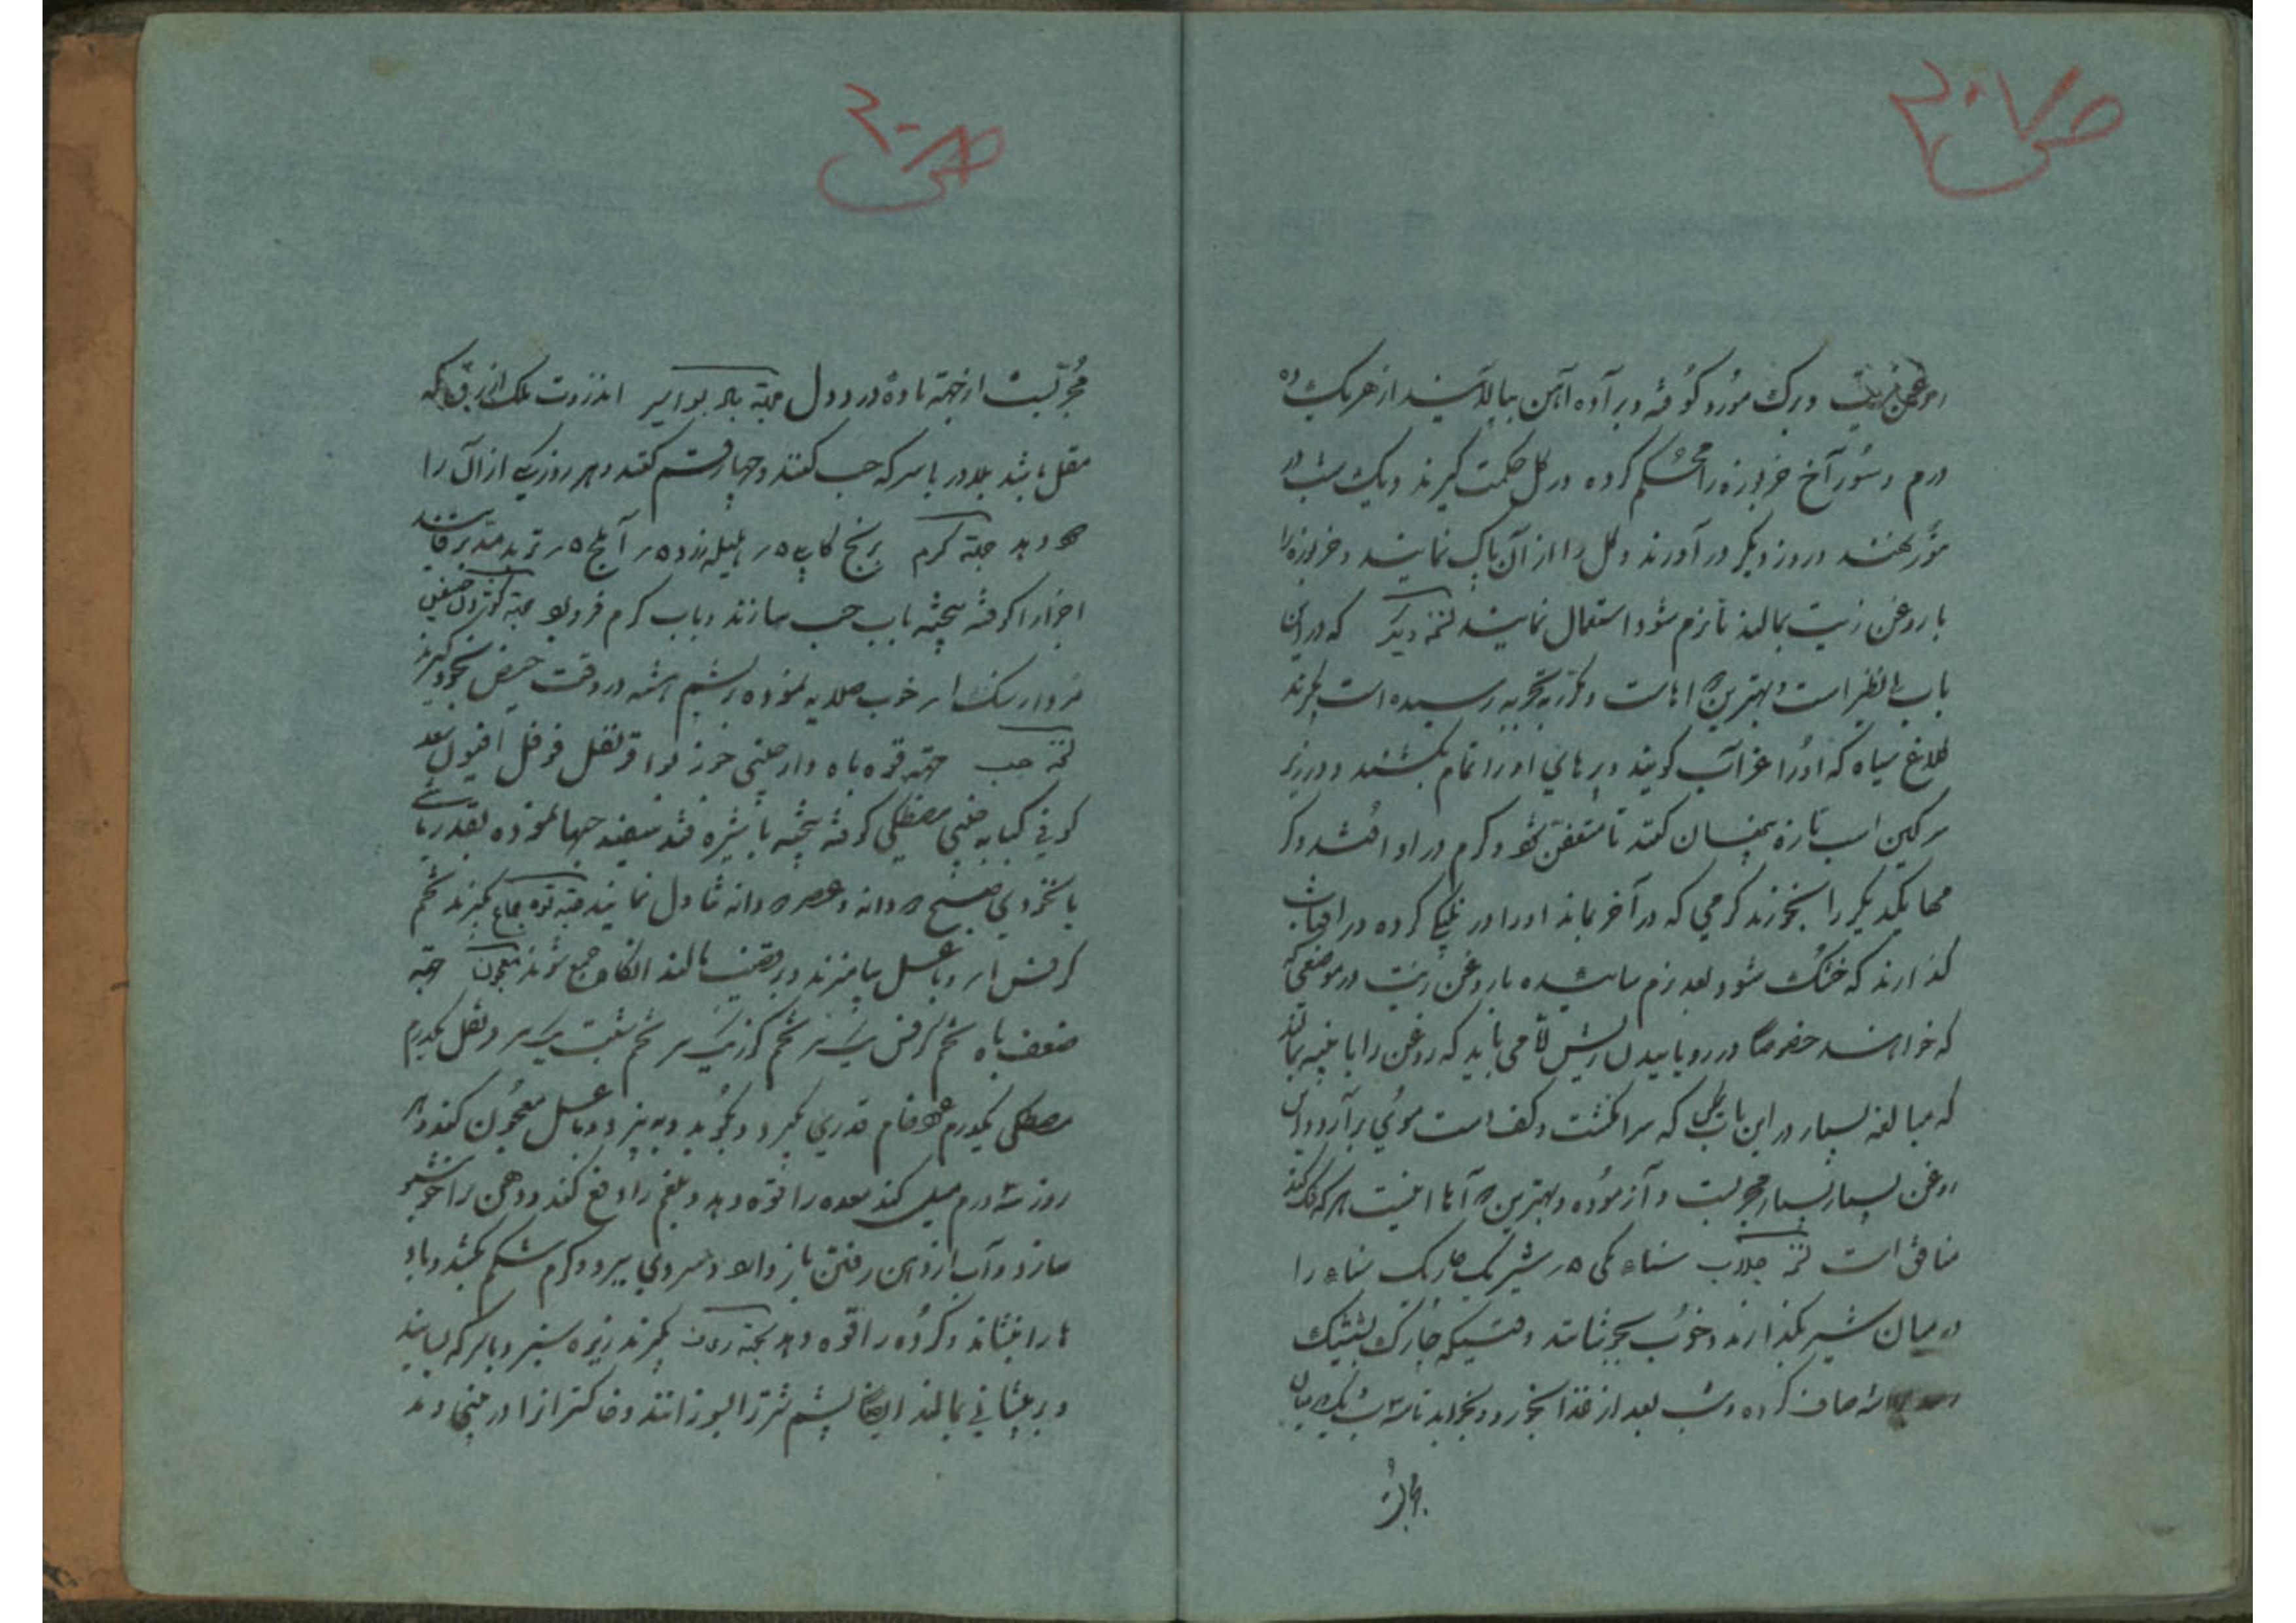 ص ۲۰۷
روغن زیت و برک مورد کوفته و براده آهن بیالایند از هریک ده
درم و سوراخ خربوزه را محکم کرده در کل حکمت کیرند و یک شب در
تنور نهند و روز دیکر در آورند و کل را از آن پاک نمایند و خربوزه را
با روغن زیت بمالند تا نرم شود استعمال نمایند نسخه دیکر که در این
باب بی نظیر است و بهترین دواهاست و مکرر بتجربه رسیده است بکیرند
کلاغ سیاه که اورا غراب کویند و پرهای اورا تمام بکنند و در زیر
سرکین اسب تازه پنهان کنند تا متعفن شود و کرم در او افتد و کر
مها یکدیکر را بخورند کرمی که در آخر بماند اورا در کرده در آفتاب
کذارند که خشک شود بعد نرم سائیده با روغن زیت در موضعی که
که خواهند خصوصا در رویانیدن ریش اما می باید که روغن را با پنبه بمالند
که مبالغه بسیار در این باب که سر انکشت و کف دست موی بر آرد و این
روغن بسیار بسیار مجربست و آزموده و بهترین دواها اینست هر که شک کند
منافق است نسخه جلاب سناء مکی ۵ر شیر یک چاریک سناء را
در میان شیر بکذارند و خوب بجوشانند وقتیکه چارک بشتیک
صاف کرده و شب بعد از غذا بخورد و بخوابد تا سه شب
مجربست
ص ۲۰۸
مجربست از جهة باده و درد دل جهة باد بواسیر انزروت نمک ازرق که
مقل باشد بلادر با سرکه حب کنند و چهار قسم کنند و هر روز یکی از آن را
دهد جهة کرم برنج کابلی ۵ر هلیله زرد ۵ر آملج ۵ر تربد
اجزا را کوفته بیخته با آب حب سازند و با آب کرم فرو برد جهة
مردارسنک ۱ر خوب صلایه نموده بر پشم هشته در وقت حیض بخود کیرند
نسخه حب جهة قوه باه دارچینی جوز بوا قرنفل فوفل افیون سعد
کوفی کبابه چینی مصطکی کوفته بیخته با شیره قند سفید حبها نموده بقدر
با نخودی صبح ۵ دانه و عصر ۵ دانه تناول نمایند جهة قوه جماع بکیرند تخم
کرفس ۱ر و با عسل بیامیزند و بر قضیب بمالند آنکاه جمع شوند معجون جهة
ضعف باه تخم کرفس تخم کزر تخم شبت و نقل یکدرم
مصطکی یکدرم عود خام قدری بکیرد و بکوبد و به بیزد و با عسل معجون کند و هر
روز سه درم میل کند معده را قوه دهد و بلغم را دفع کند و دهن را خوشبو
سازد و آب از دهن رفتن باز دارد و سردی ببرد و کرم شکم بکشد و باد
ها را بنشاند و کرده را قوه دهد بجهة بکیرند زیره سبز و با سرکه بسایند
و بر پیشانی بمالند ایضا پشم شتر را بسوزانند و خاکستر آنرا در بینی دمد